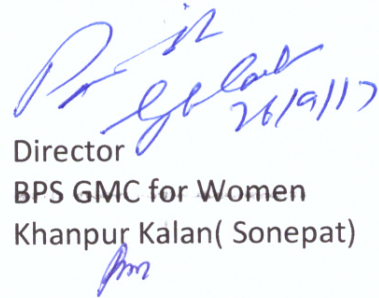 26/9/17
Director
BPS GMC for Women
Khanpur Kalan( Sonepat)